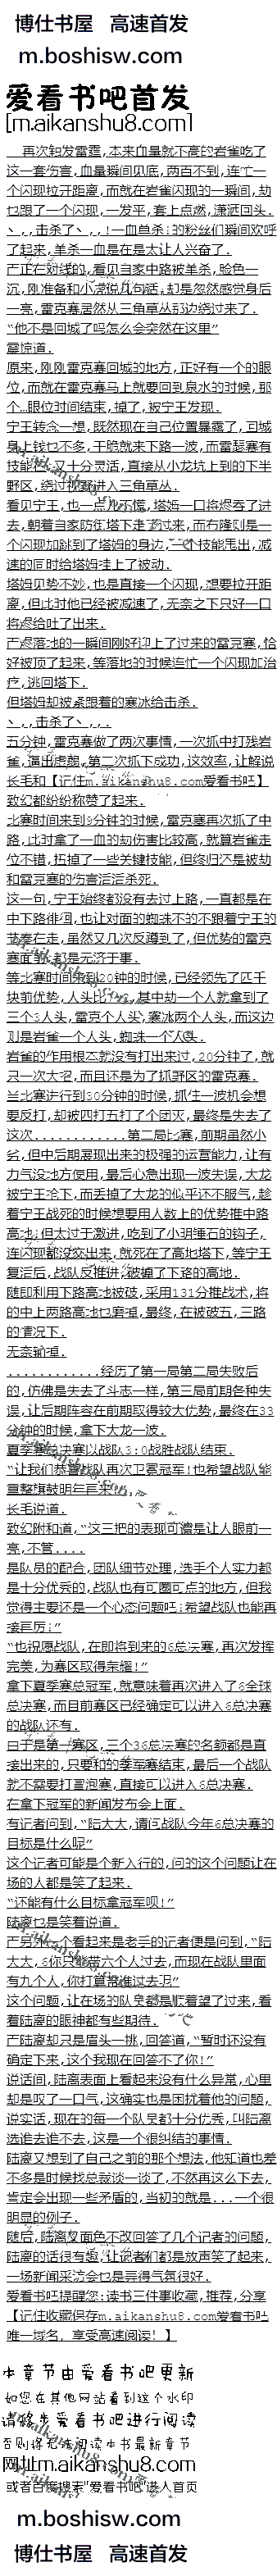 博仕书屋 高速首发
m.boshisw.com
爱看书吧首发
[m.aikanshu8.com]
再次短发雷霆,本来血量就不高的岩雀吃了
这一套伤害,血量瞬间见底,两百不到,连忙一
个闪现拉开距离,而就在岩雀闪现的一瞬间,劫
也跟了一个闪现,一发平,套上点燃,潇洒回头.
丶,,击杀了丶,,!一血单杀!的粉丝们瞬间欢呼
了起来,单杀一血是在是太让人兴奋了.
严正在对线的,看见自家中路被单杀,脸色一
沉,刚准备和小凌说几句话,却是忽然感觉身后
一亮,雷克塞居然从三角草丛那边绕过来了.
“他不是回城了吗怎么会突然在这里”
震惊道.
原来,刚刚雷克塞回城的地方,正好有一个的眼
位,而就在雷克塞马上就要回到泉水的时候,那
个…眼位时间结束,掉了,被宁王发现.
宁王转念一想,既然现在自己位置暴露了,回城
身上钱也不多,干脆就来下路一波,而雷瑟赛有
技能在又十分灵活,直接从小龙坑上到的下半
野区,绕过视野进入三角草丛.
看见宁王,也一点儿不慌,塔姆一口将烬吞了进
去,朝着自家防御塔下走了过来,而右隆则是一
个闪现加跳到了塔姆的身边,一个技能甩出,减
速的同时给塔姆挂上了被动.
塔姆见势不妙,也是直接一个闪现,想要拉开距
离,但此时他已经被减速了,无奈之下只好一口
将烬给吐了出来.
严烬落地的一瞬间刚好迎上了过来的雷克塞,恰
好被顶了起来,等落地的时候连忙一个闪现加治
疗,逃回塔下.
但塔姆却被紧跟着的寒冰给击杀.
丶,,击杀了丶,,.
五分钟,雷克塞做了两次事情,一次抓中打残岩
雀,逼出虚弱,第二次抓下成功,这效率,让解说
长毛和【记住m.aikanshu8.com爱看书吧】
致幻都纷纷称赞了起来.
比赛时间来到9分钟的时候,雷克塞再次抓了中
路,此时拿了一血的劫伤害比较高,就算岩雀走
位不错,扭掉了一些关键技能,但终归还是被劫
和雷克塞的伤害活活杀死.
这一句,宁王始终都没有去过上路,一直都是在
中下路徘徊,也让对面的蜘蛛不的不跟着宁王的
节奏在走,虽然又几次反蹲到了,但优势的雷克
塞面前,都是无济于事.
等比赛时间来到20分钟的时候,已经领先了四千
块前优势,人头比六一,其中劫一个人就拿到了
三个3人头,雷克个人头,寒冰两个人头,而这边
则是岩雀一个人头,蜘蛛一个人头.
岩雀的作用根本就没有打出来过,20分钟了,就
只一次大招,而且还是为了抓野区的雷克塞.
当比赛进行到30分钟的时候,抓住一波机会想
要反打,却被四打五打了个团灭,最终是失去了
这次............第二局比赛,前期虽然小
劣,但中后期展现出来的极强的运营能力,让有
力气没地方使用,最后心急出现一波失误,大龙
被宁王抢下,而丢掉了大龙的似乎还不服气,趁
着宁王战死的时候想要用人数上的优势推中路
高地,但太过于激进,吃到了小明锤石的钩子,
连闪现都没交出来,就死在了高地塔下,等宁王
复活后,战队反推进,破掉了下路的高地.
随即利用下路高地被破,采用131分推战术,将
的中上两路高地也磨掉,最终,在被破五,三路
的情况下.
无奈输掉.
............经历了第一局第二局失败后
的,仿佛是失去了斗志一样,第三局前期各种失
误,让后期阵容在前期取得较大优势,最终在33
分钟的时候,拿下大龙一波.
夏季赛总决赛以战队3:0战胜战队结束.
“让我们恭喜战队再次卫冕冠军!也希望战队能
重整旗鼓明年再来.”
长毛说道.
致幻附和道,“这三把的表现可谓是让人眼前一
亮,不管....
是队员的配合,团队细节处理,选手个人实力都
是十分优秀的,战队也有可圈可点的地方,但我
觉得主要还是一个心态问题吧!希望战队也能再
接再厉!”
“也祝愿战队,在即将到来的6总决赛,再次发挥
完美,为赛区取得荣耀!”
拿下夏季赛总冠军,就意味着再次进入了6全球
总决赛,而目前赛区已经确定可以进入6总决赛
的战队还有.
由于是第一赛区,三个36总决赛的名额都是直
接出来的,只要和的季军赛结束,最后一个战队
就不需要打冒泡赛,直接可以进入6总决赛.
在拿下冠军的新闻发布会上面.
有记者问到,“陆大大,请问战队今年6总决赛的
目标是什么呢”
这个记者可能是个新入行的,问的这个问题让在
场的人都是笑了起来.
“还能有什么目标拿冠军呗!”
陆离也是笑着说道.
严另外一个看起来是老手的记者便是问到,“陆
大大,6你只能带六个人过去,而现在战队里面
有九个人,你打算带谁过去呢”
这个问题,让在场的队员都是盯着望了过来,看
着陆离的眼神都有些期待.
严陆离却只是眉头一挑,回答道,“暂时还没有
确定下来,这个我现在回答不了你!”
说话间,陆离表面上看起来没有什么异常,心里
却是叹了一口气,这确实也是困扰着他的问题,
说实话,现在的每一个队员都十分优秀,叫陆离
选谁去谁不去,这是一个很纠结的事情.
陆离又想到了自己之前的那个想法,他知道也差
不多是时候找总裁谈一谈了,不然再这么下去,
肯定会出现一些矛盾的,当初的就是...一个很
明显的例子.
随后,陆离又面色不改回答了几个记者的问题,
陆离的话很有趣,让记者们都是放声笑了起来,
一场新闻采访会也是弄得气氛很好.
爱看书吧提醒您:读书三件事收藏,推荐,分享
【记住收藏保存m.aikanshu8.com爱看书吧
唯一域名, 享受高速阅读! 】
本章节由爱看书吧更新
如您在其他网站看到这个水印
请移步爱看书吧进行阅读
否则将无法阅读本书最新章节
网址m.aikanshu8.com
或者百度搜索"爱看书吧"进入首页
m.boshisw.com
博仕书屋 高速首发